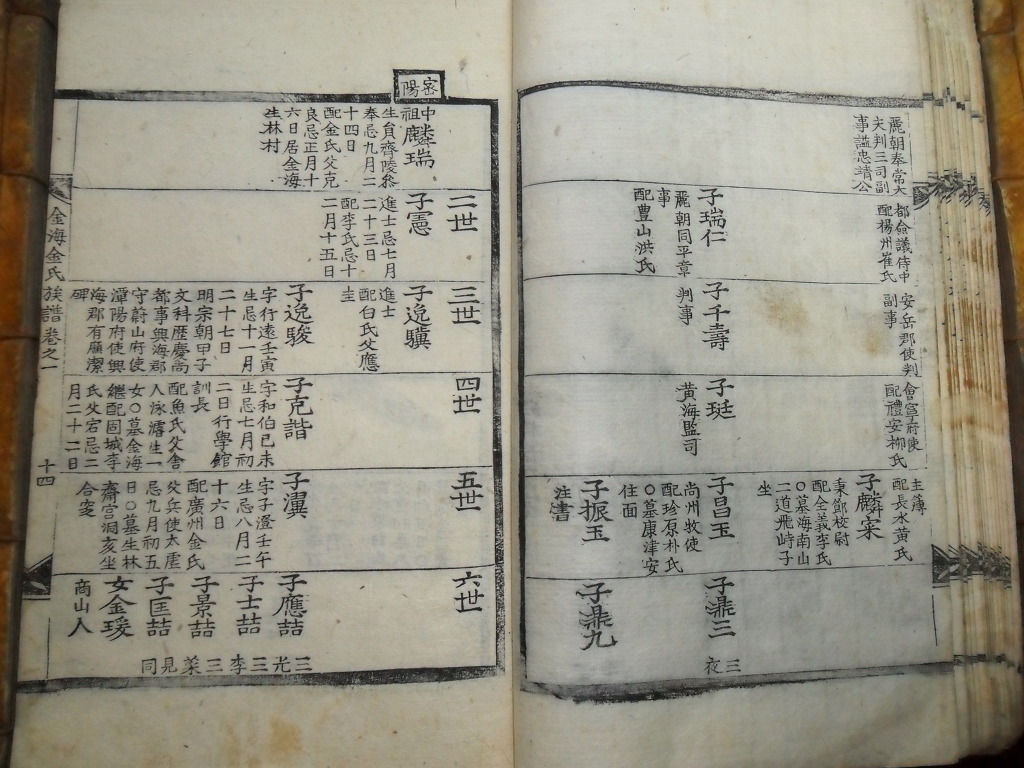 麗朝奉常大
夫判三司副
事謚忠靖公
都僉議侍中
配楊州崔氏
子瑞仁
麗朝同平章
事
配豊山洪氏
安岳郡使判
副事
子千壽
判事
會寧府使
配禮安柳氏
子珽
黃海監司
主簿
配長水黃氏
子麟寀
秉節校尉
配全義李氏
○墓海南山
二道飛峙子
坐
子昌玉
尚州牧使
配珍原朴氏
○墓康津安
住面
子振玉
注書
子鼎三
三夜
子鼎九
密陽
中祖麟瑞
生員齊陵叅
奉忌九月二
十四日
配金氏父克
良忌正月十
六日居金海
生林村
二世
子憲
進士忌七月
二十三日
配李氏忌十
二月十五日
三世
子逸驥
進士
配白氏父應
圭
子逸駿
字行遠壬寅
生忌十一月
二十七日
明宗朝甲子
文科歷慶尚
都事興海郡
守蔚山府使
潭陽府使興
海郡有廉潔
碑
四世
子克諧
字和伯己未
生忌七月初
二日行學
訓長
配魚氏父舍
人泳濬生一
女○墓金海
繼配固城李
氏父宕忌二
月二十二日
五世
子瀷
字子澄壬午
生忌八月二
十六日
配廣州金氏
父兵使太虛
忌九月初五
日○墓生林
齋宫洞亥坐
合窆
六世
子應喆
三光
子士喆
三李
子景喆
三菜
子匡喆
見
女金瑗
商山人
同
金海金氏族譜卷之一
十四